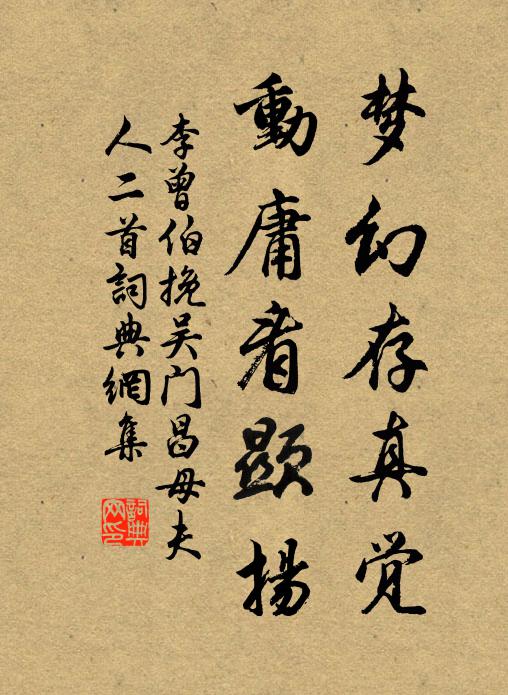 梦幻存真觉
動庸看顯揚
李曾伯挽吴门昌母夫
人二首詞典網集
詞典
网印